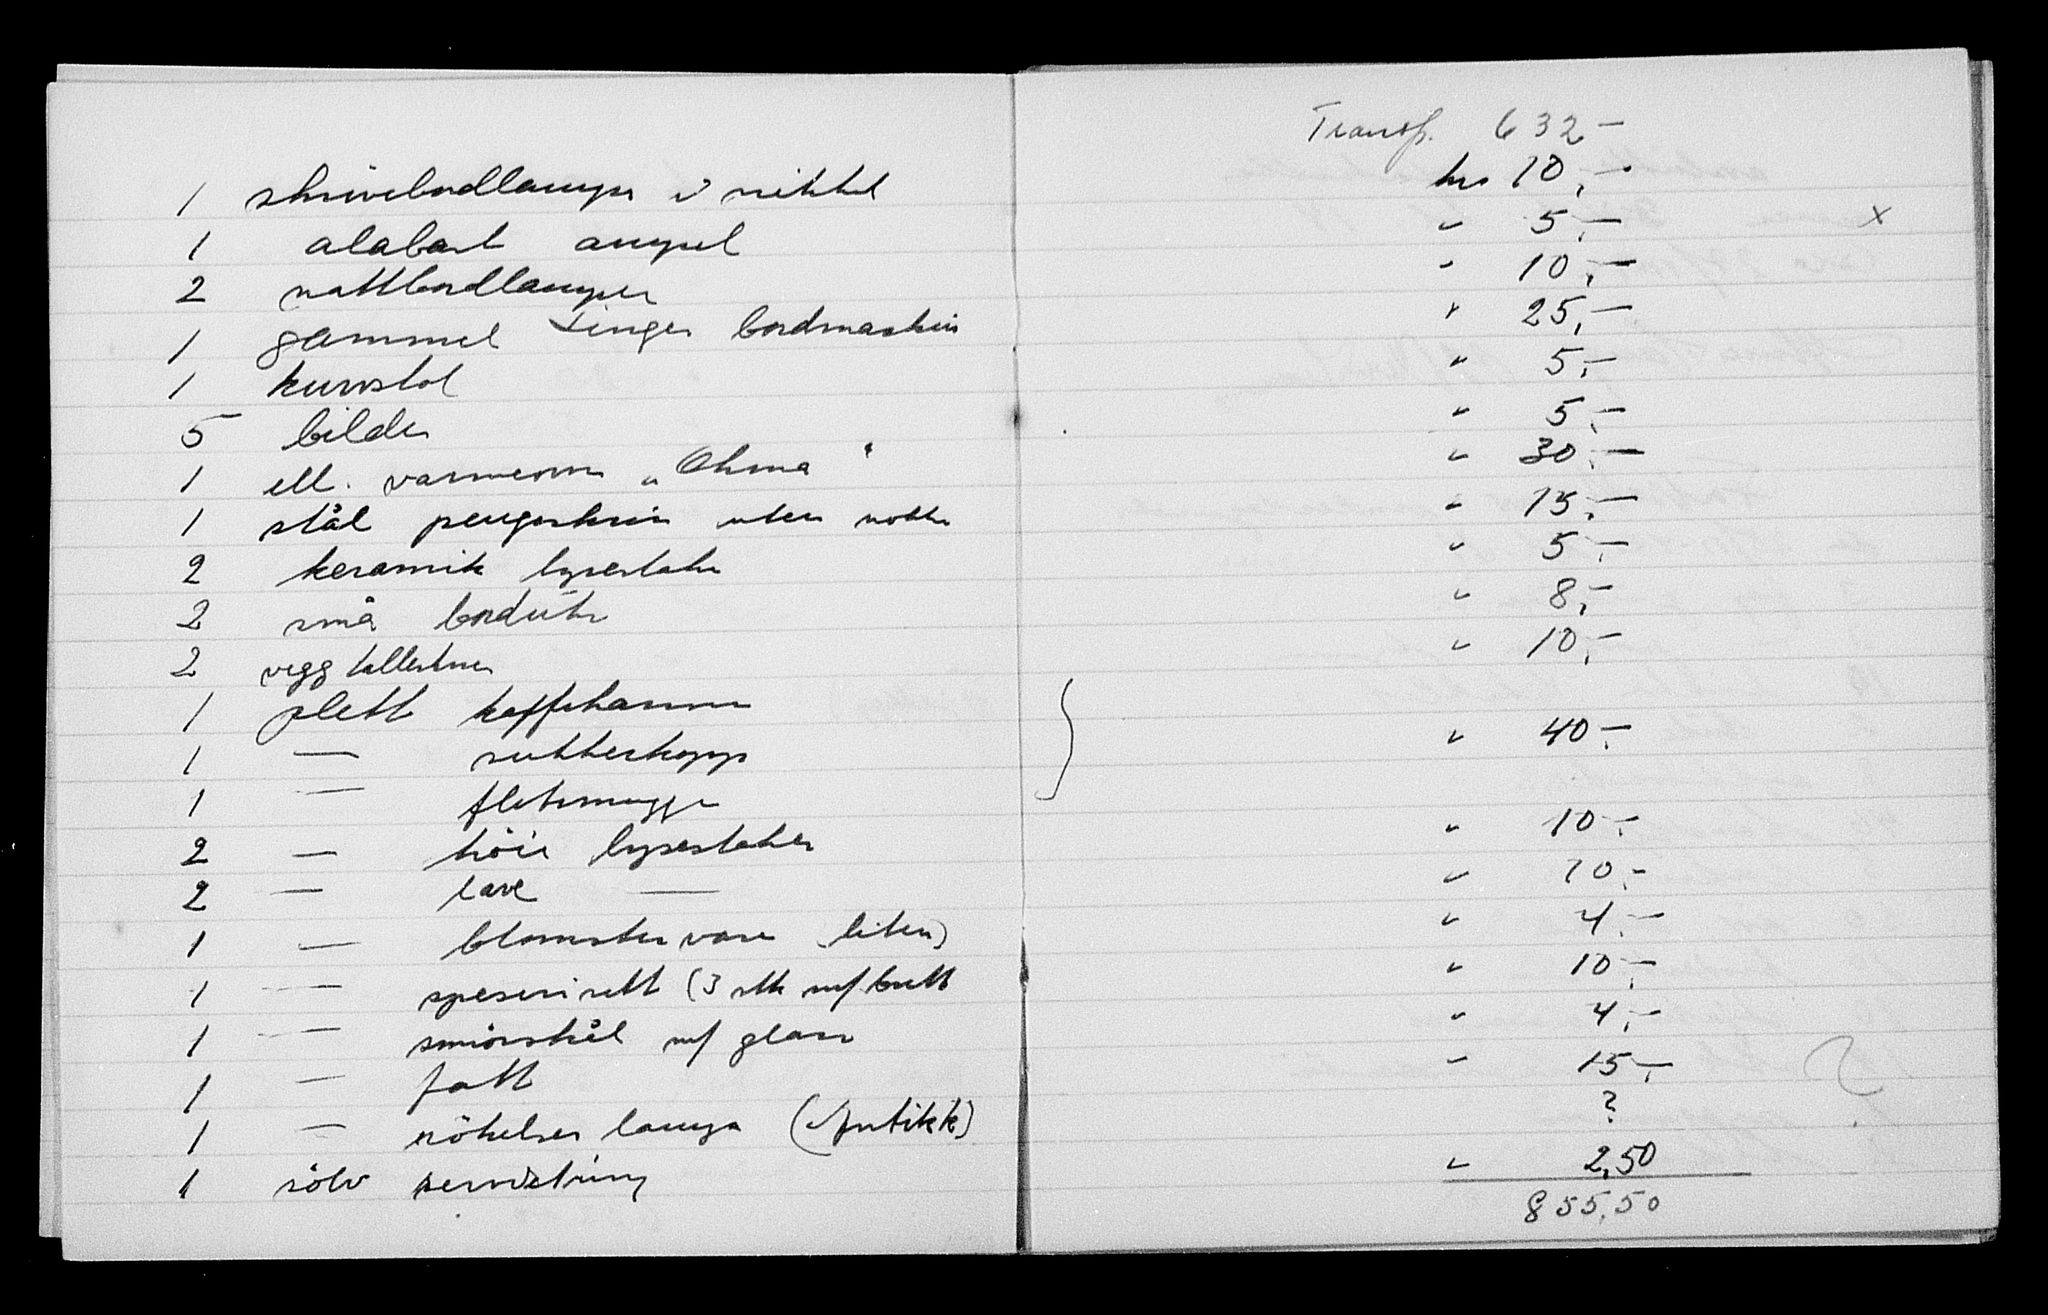 Transp. 632 –
1 skrivebordlampe i nikkel kr 10,–
1 alabast ampel " 5,– x
2 nattbordlamper " 10,–
1 gammel Singer bordmaskin " 25,–
1 kurvstol " 5,–
5 bilder " 5,–
1 ell. varmeovn „Ohma" " 30,–
1 stål pengeskrin uten nökler " 15,–
2 keramik lysestaker " 5,–
2 små bordure " 8,–
2 vegg tallerkner " 10,–
1 plett kaffekanne
1 — sukkerkopp } " 40,–
1 — flötemugge
2 — höie lysestaker " 10,–
2 — lave — " 10,–
1 — blomstervase (liten) " 4,–
1 — speseri sett (3 stk m/ brett " 10,–
1 — smörskål m/ glass " 4,–
1 — fatt " 15,–
1 — rökelses lampe (Antikk) ?
1 sölv serviettring " 2,50
855,50